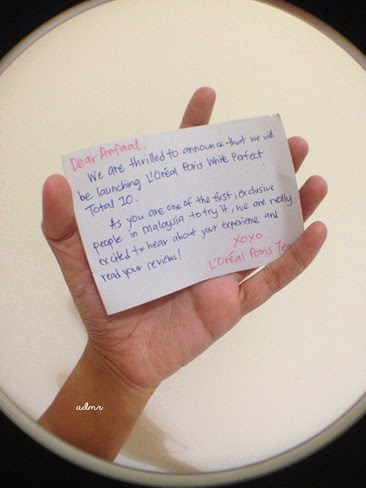 Dear Anfaal,
We are thrilled to announce that we will
be launching L'Oréal Paris White Perfect
Total 10.
As you are one of the first, exclusive
people in malaysia to try it, we are really
excited to hear about your experience and
read your reviews!
XOXO
L'Oréal Paris Team
admr